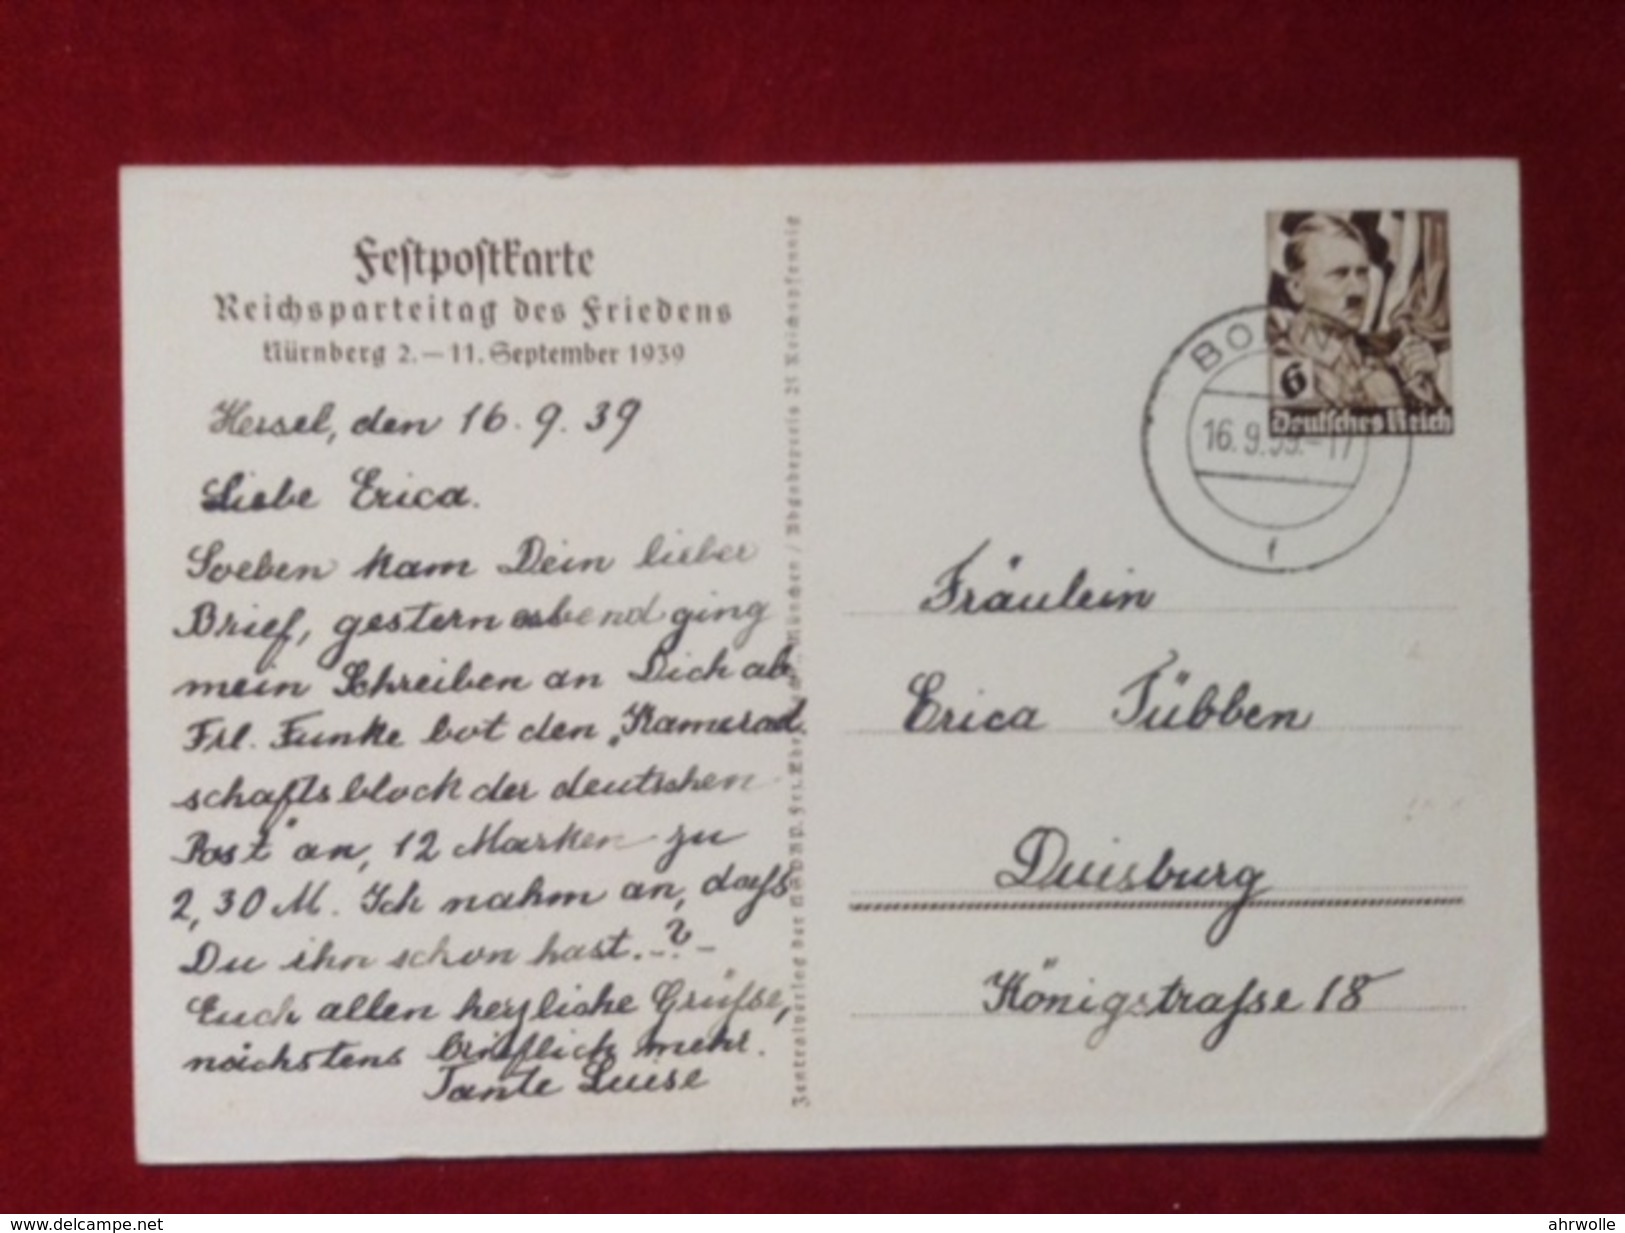 Festpostkarte
Reichsparteitag des Friedens
Nürnberg 2.–11. September 1939
Hersel, den 16.9.39
Liebe Erica.
Soeben kam Dein lieber
Brief, gestern abend ging
mein Schreiben an Dich ab
Frl. Funke bot den „Kamerad
schaftsblock der deutschen
Post" an, 12 Marken zu
2,30 M. Ich nahm an, daß
Du ihn schon hast. -?-
Euch allen herzliche Grüße,
nächstens brieflich mehr.
Tante Luise
Zentralverlag der NSDAP. Frz. Eher München / Abgabepreis 25 Reichspfennig
6
Deutsches Reich
BONN
16.9.39.-17
f
Fräulein
Erica Tübben
Duisburg
Königstraße 18
www.delcampe.net
ahrwolle